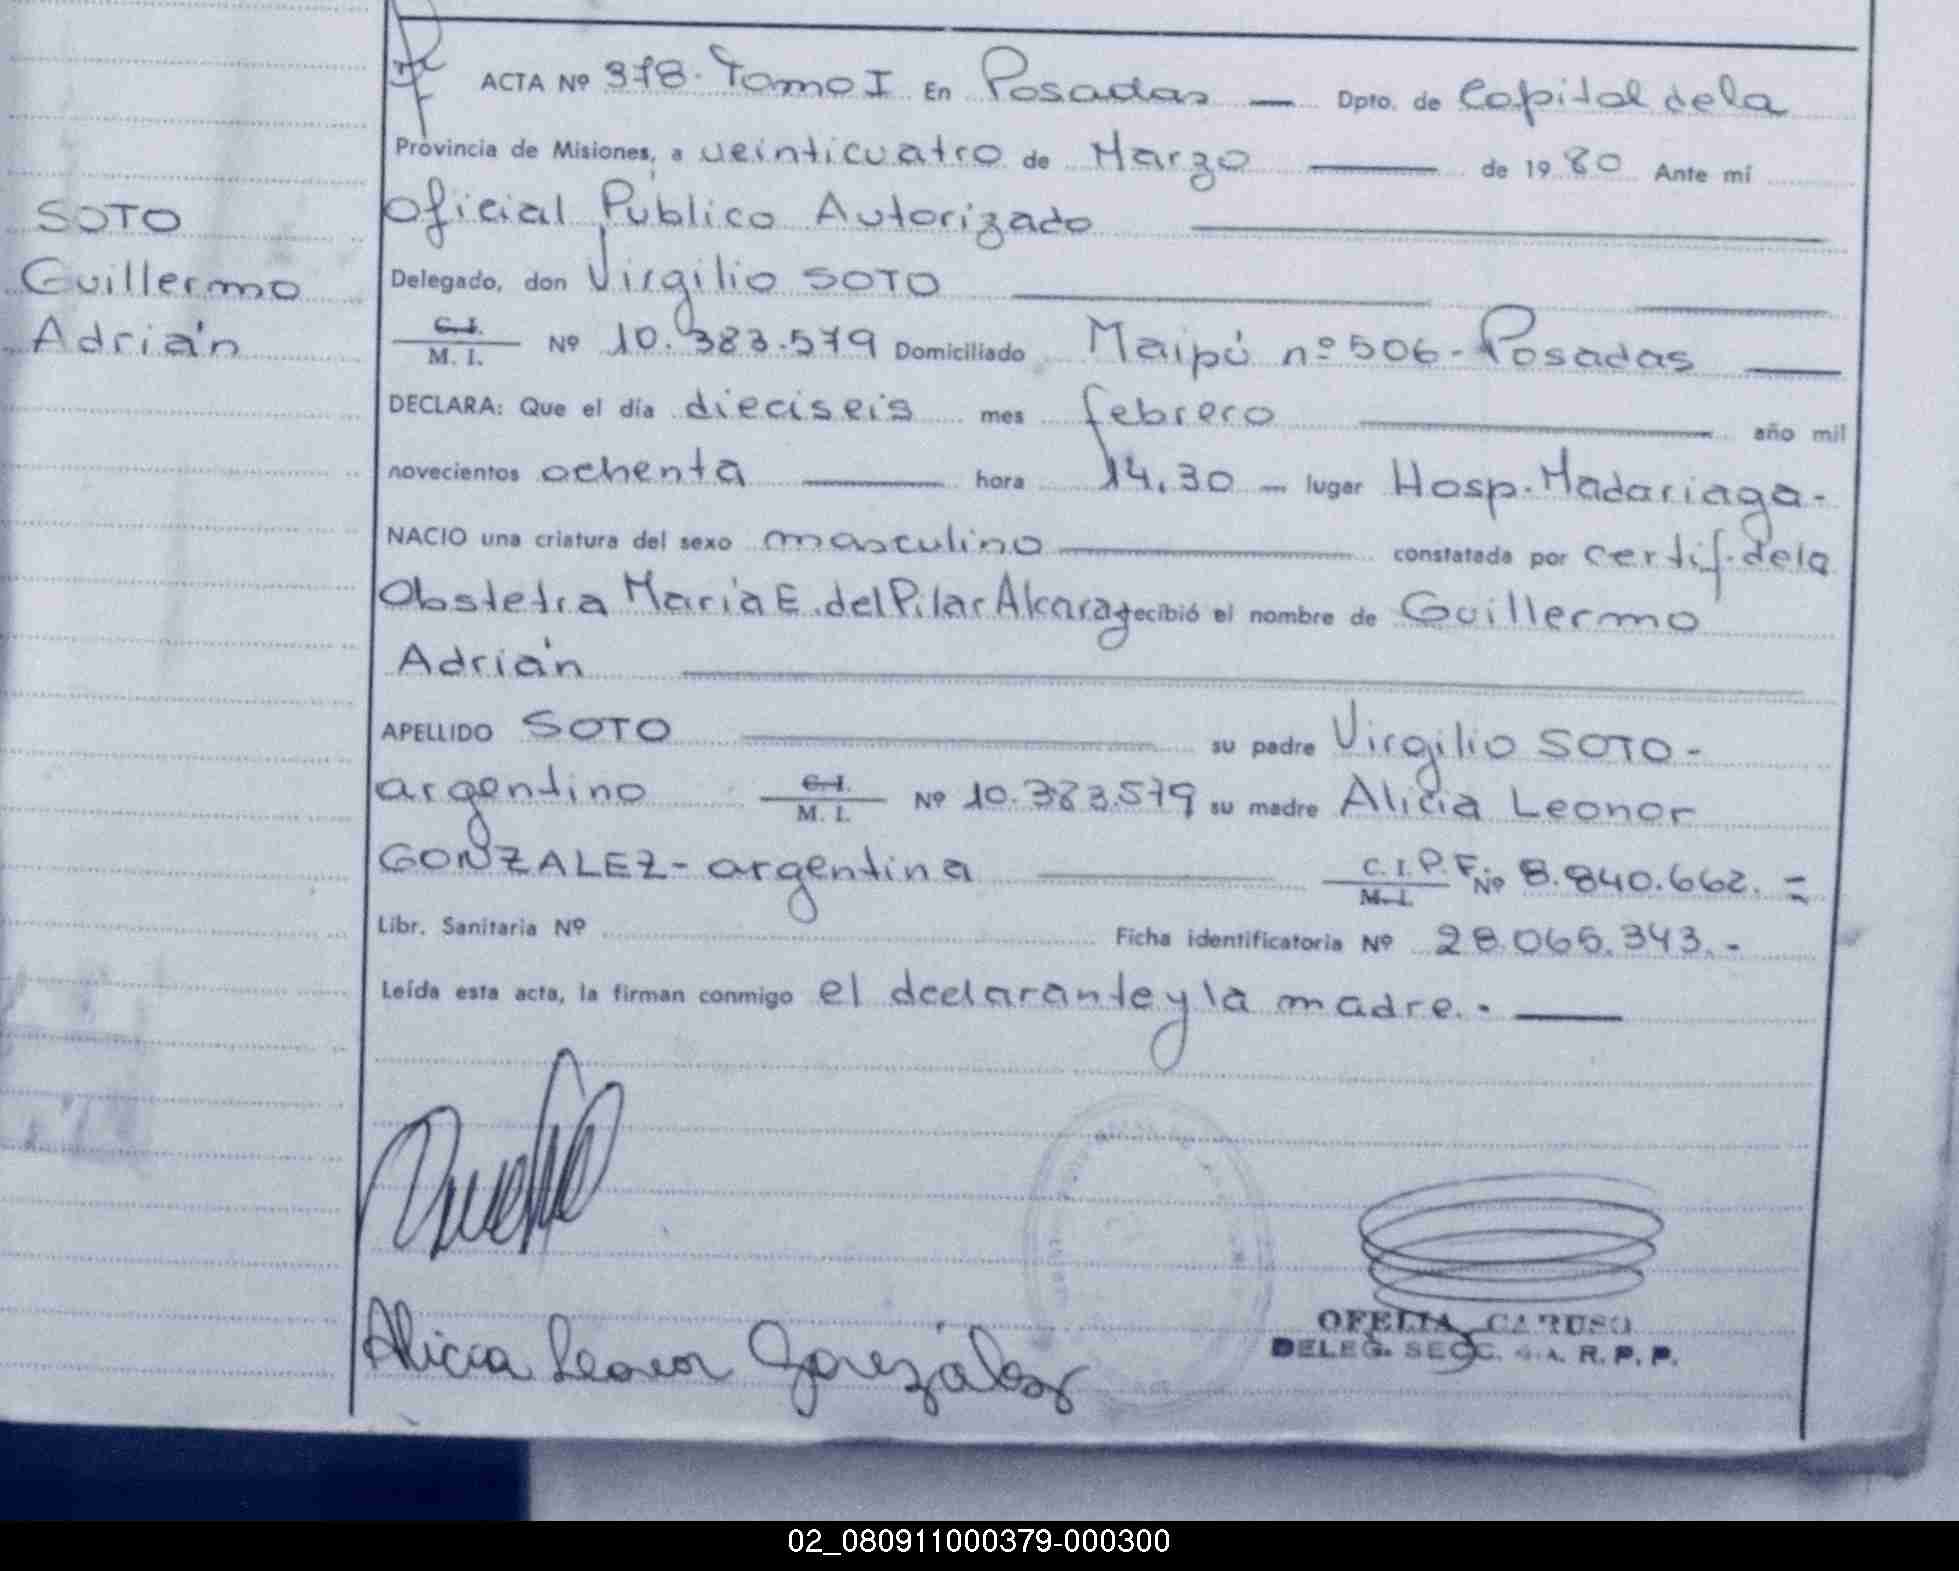 ACTA Nº 378. Tomo I En Posadas — Dpto. de Capital de la
Provincia de Misiones, a veinticuatro de Marzo — de 1980 Ante mí
Oficial Público Autorizado
SOTO
Guillermo
Adrián
Delegado, don Virgilio SOTO
C.I. M. I. Nº 10.383.579 Domiciliado Maipú nº 506 - Posadas
DECLARA: Que el día dieciseis mes febrero año mil
novecientos ochenta hora 14.30 — lugar Hosp. Madariaga -
NACIO una criatura del sexo masculino constatada por certif. de la
Obstetra María E. del Pilar Alcaraz recibió el nombre de Guillermo
Adrián
APELLIDO SOTO su padre Virgilio SOTO -
argentino C.I. M. I. Nº 10.383.579 su madre Alicia Leonor
GONZALEZ - argentina C. I. P. F. M. I. Nº 8.840.662. =
Libr. Sanitaria Nº Ficha identificatoria Nº 28.065.343. -
Leída esta acta, la firman conmigo el declarante y la madre. -
Alicia Leonor González
OFELIA CARUSO
DELEG. SECC. 4a. R. P. P.
02_080911000379-000300